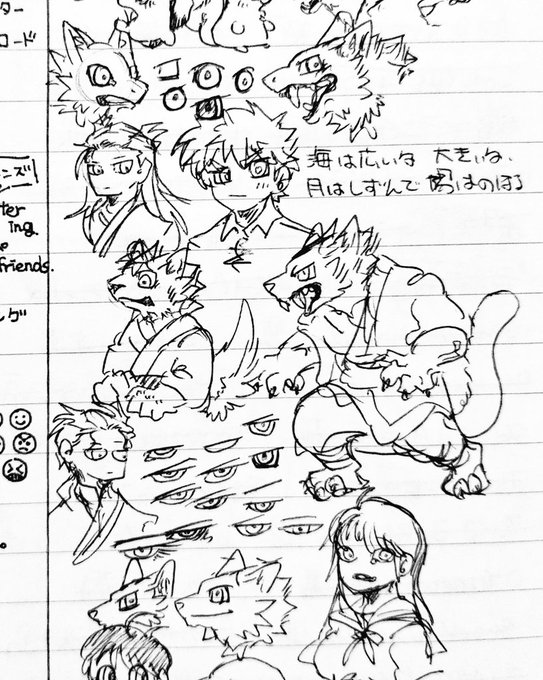 ター
コード
海は広いな 大きいな、
月はしずんで はのぼる
ter
ing.
friends.